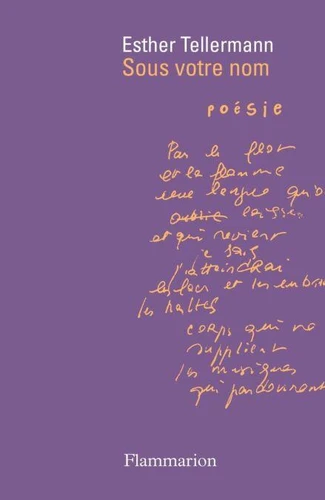 Esther Tellermann
Sous votre nom
poésie
Par le flot
et la flamme
une langue qu'on
laisser
et qui revient
je sais
j'atteindrai
et les
les haltes
corps qui ne
supplient
les musiques
qui pardonnent
Flammarion